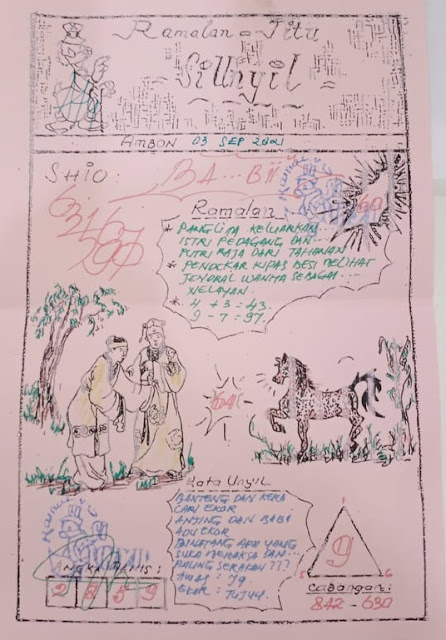 Ramalan = Jitu
= Si Unyil =
AMBON 03 SEP 2021
SHIO:
BA... BI
60
Ramalan
* PANGLIMA KELUARKAN
ISTRI PEDAGANG DAN...
PUTRI RAJA DARI TAHANAN
* PENDEKAR KIPAS BESI MELIHAT
JENDRAL WANITA SEBAGAI....
NELAYAN
* 4 + 3 = 43.
9 - 7 = 97.
64
Kata Unyil
BANTENG DAN KERA
CARI EKOR
ANJING DAN BABI
ADU EKOR
BINATANG APA YANG
SUKA MEMAKSA DAN...
PALING SERAKAH ???
EKOR : TUJUH.
ANGKA MANIS :
2 8 5 9
1
9
6
Cadangan:
842 - 630